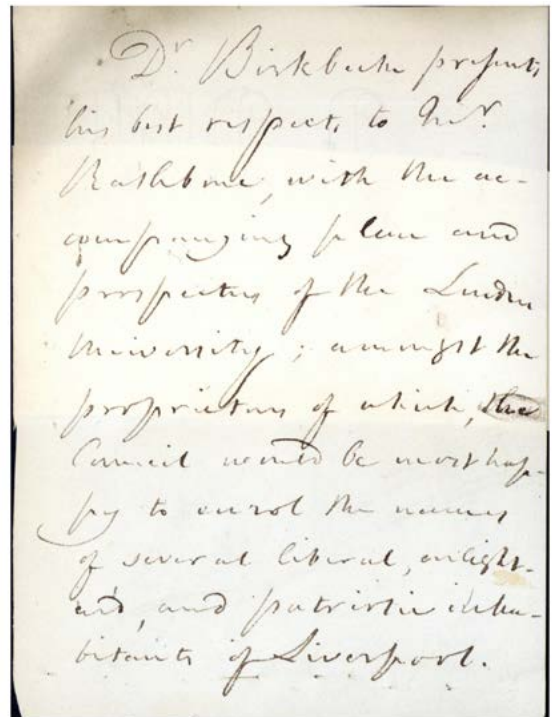 Dr. Birkbeck presents
his best respects to Mr.
Rathbone, with the ac-
companying plan and
prospectus of the London
University; amongst the
proprietors of which, the
Council would be most hap-
py to enrol the names
of several liberal, enlight-
end, and patriotic inha-
bitants of Liverpool.